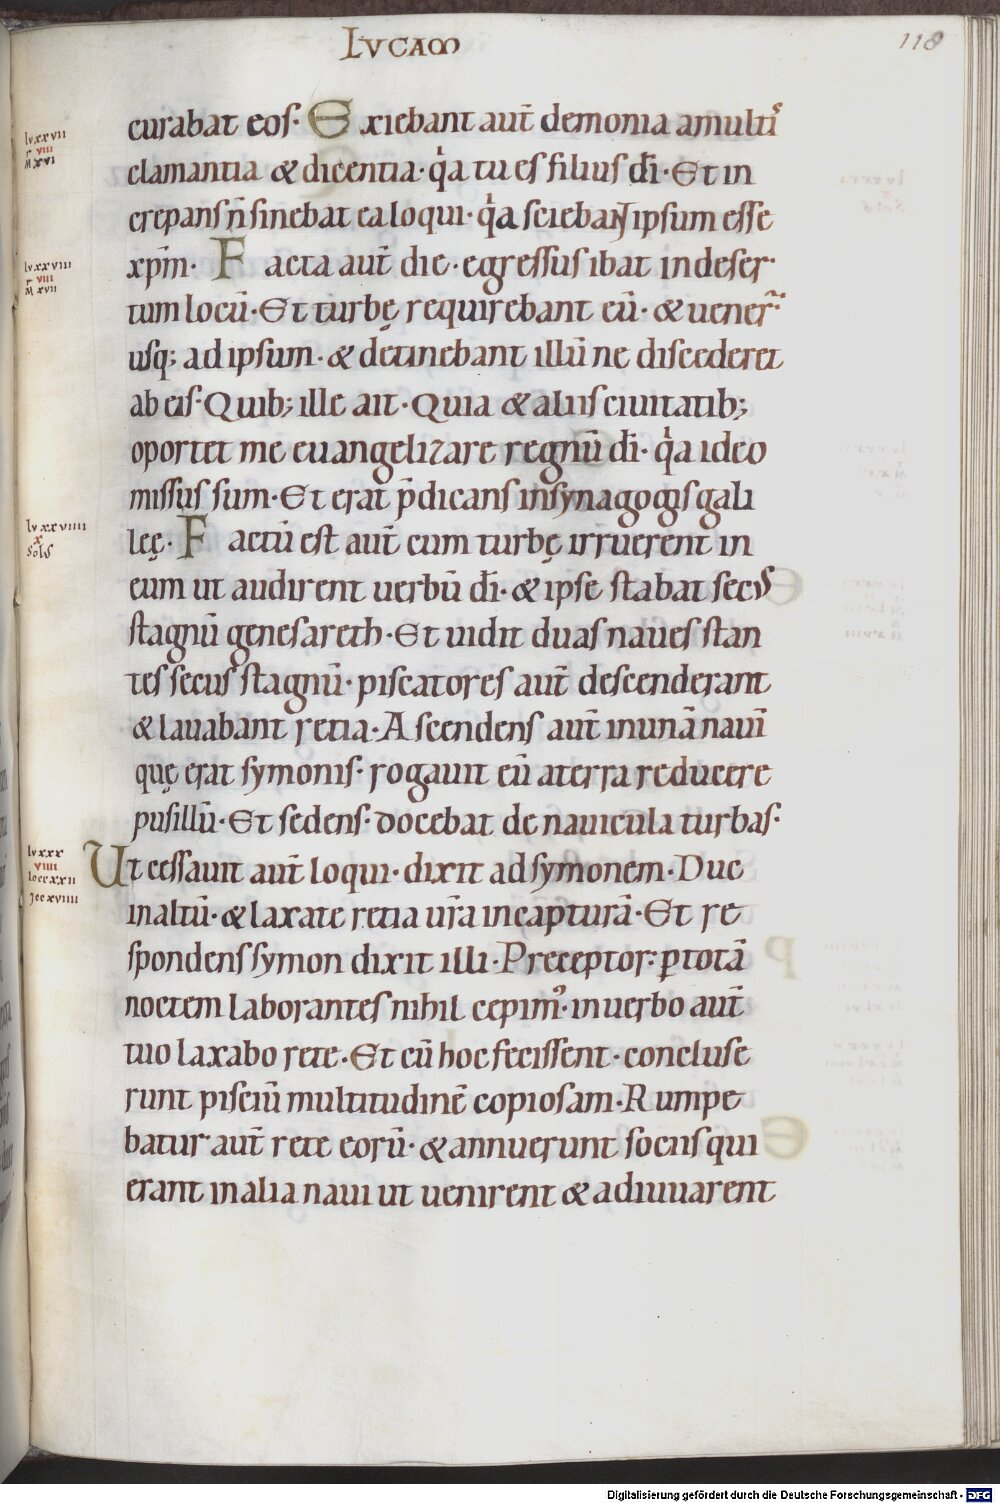 LVCAM
118
curabat eos· Exiebant aut̄ demonia amultis
clamantia & dicentia· qͥa tu es filius dī· Et in
crepans n̄ sinebat ea loqui· qͥa sciebant ipsum esse
xp̄m· Facta aut̄ die· egressus ibat in deser
tum locū· Et turbę requirebant eū· & uener̄
usq; ad ipsum· & detinebant illū ne discederet
ab eis· Quib; ille ait· Quia & aliis ciuitatib;
oportet me euangelizare regnū dī· qͥa ideo
missus sum· Et erat p̄dicans in synagogis gali
leę· Factū est aut̄ cum turbę irruerent in
eum ut audirent uerbū dī· & ipse stabat secus
stagnū genesareth· Et uidit duas naues stan
tes secus stagnū· piscatores aut̄ descenderant
& lauabant retia· Ascendens aut̄ in unā nauī
quę erat symonis· rogauit eū a terra reducere
pusillū· Et sedens· docebat de nauicula turbas·
Ut cessauit aut̄ loqui· dixit ad symonem· Duc
in altū· & laxate retia ur̄a in capturā· Et re
spondens symon dixit illi· Preceptor· ꝑ totā
noctem laborantes nihil cepimꝰ· in uerbo aut̄
tuo laxabo rete· Et cū hoc fecissent· concluse
runt pisciū multitudinē copiosam· Rumpe
batur aut̄ rete eorū· & annuerunt sociis qui
erant in alia naui ut uenirent & adiuuarent
lxxvii
viii
M xvi
lxxviii
viii
M xvii
lxxviiii
x
Sols
lxxx
viiii
Digitalisierung gefördert durch die Deutsche Forschungsgemeinschaft · DFG